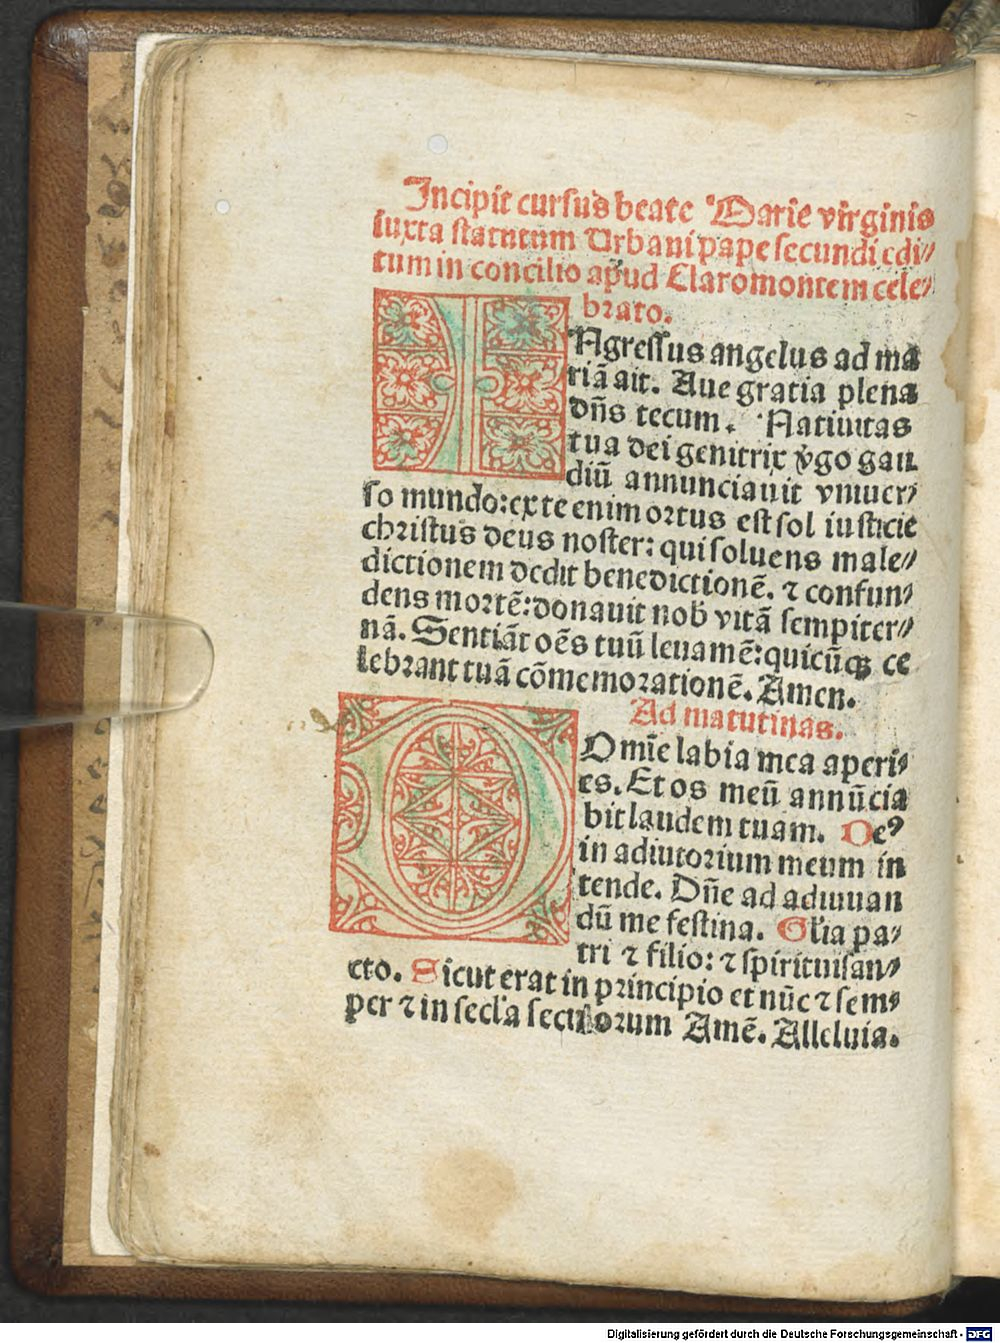 Incipit cursus beate Marie virginis
iuxta statutum Urbani pape secundi edi⸗
tum in concilio apud Claromontem cele⸗
brato.
INgressus angelus ad ma
riā ait. Aue gratia plena
dn̄s tecum. Natiuitas
tua dei genitrix v̓go gau
diū annunciauit vniuer⸗
so mundo: ex te enim ortus est sol iusticie
christus deus noster: qui soluens male⸗
dictionem dedit benedictionē. ⁊ confun⸗
dens mortē: donauit nob̓ vitā sempiter⸗
nā. Sentiāt oēs tuū leuamē: quicūqꝫ ce
lebrant tuā cōmemorationē. Amen.
Ad matutinas.
DOmīe labia mea aperi⸗
es. Et os meū annūcia
bit laudem tuam. Deꝰ
in adiutorium meum in
tende. Dn̄e ad adiuuan
dū me festina. Gl̓ia pa⸗
tri ⁊ filio: ⁊ spiritui san⸗
cto. Sicut erat in principio et nūc ⁊ sem⸗
per ⁊ in secl̓a seculorum Amē. Alleluia.
Digitalisierung gefördert durch die Deutsche Forschungsgemeinschaft - DFG